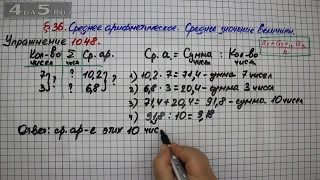 4АБ5.RU
§ 36. Среднее арифметическое. Среднее значение величин.
Упражнение 1048.
Кол-во Σ Ср. ар.
чисел чисел
7 ? 10,2
3 ? 6,8
?
Ср. а = Сумма чисел : Кол-во чисел
1) 10,2 · 7 = 71,4 - сумма 7 чисел
2) 6,8 · 3 = 20,4 - сумма 3 чисел
3) 71,4 + 20,4 = 91,8 - сумма 10 чисел
4) 91,8 : 10 = 9,18
Ответ: ср. ар-е этих 10 чис